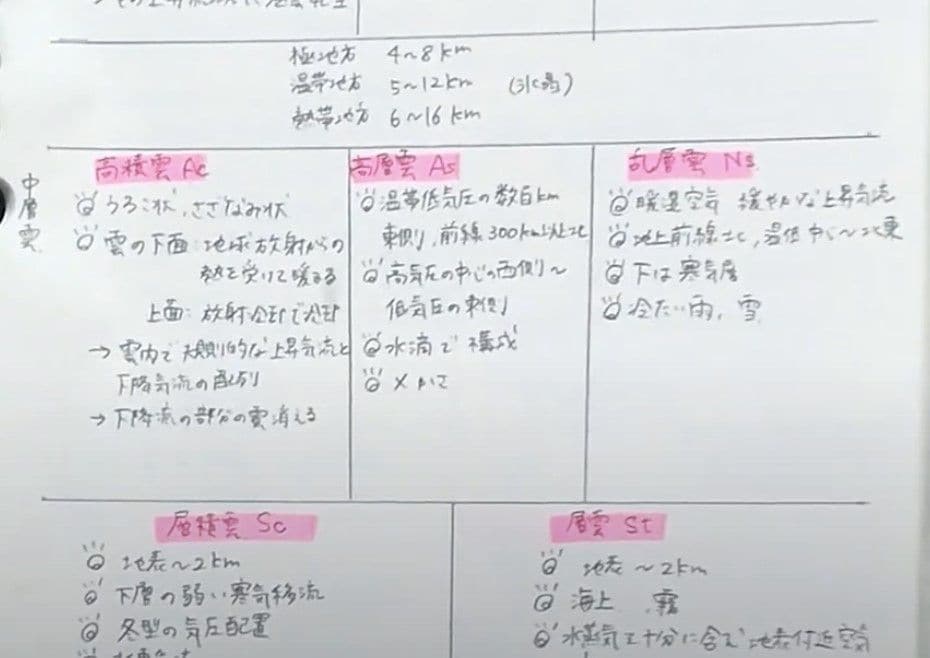 極地方 4～8km
温帯地方 5～12km (氷晶)
熱帯地方 6～16km
中層雲
高積雲 Ac
うろこ状, さざなみ状
雲の下面: 地球放射からの
熱を受けて暖まる
上面: 放射冷却で冷却
→ 雲内で規則的な上昇気流と
下降気流の配列
→ 下降流の部分の雲消える
高層雲 As
温帯低気圧の数百km
東側, 前線300km以上北
高気圧の中心の西側～
低気圧の東側
水滴で構成
乱層雲 Ns
暖湿空気 緩やかな上昇気流
地上前線北, 温低中心～北東
下は寒気層
冷たい雨, 雪
層積雲 Sc
地表～2km
下層の弱い寒気移流
冬型の気圧配置
層雲 St
地表～2km
海上 霧
水蒸気を十分に含んで地表付近空気